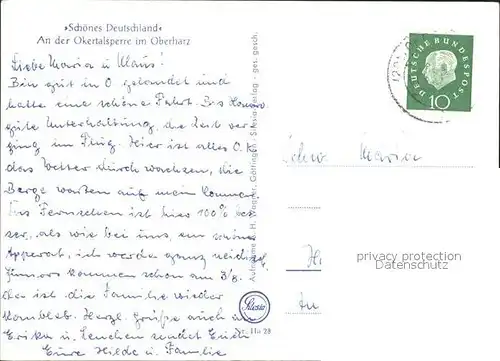 »Schönes Deutschland«
An der Okertalsperre im Oberharz
Liebe Maria u. Klaus!
Bin gut in O gelandet und
hatte eine schöne Fahrt. Bis Hann.
gute Unterhaltung, die Zeit ver
ging im Flug. Hier ist alles O.K.
das Wetter durchwachsen, die
Berge warten auf mein Kommen.
Das Fernsehen ist hier 100% bes
ser, als wie bei uns, ein schöner
Apparat, ich werde ganz neidisch.
kommen schon am
da ist die Familie wieder
komplett. Herzl. Grüße auch an
Erika u. sendet Euch
Eure Hilde u. Familie
Aufnahme u. H. Wagner, Göttingen. Stesia-Verlag - ges. gesch.
Stesia
11a 28
DEUTSCHE BUNDESPOST
10
Schw. Maria
privacy protection
Datenschutz